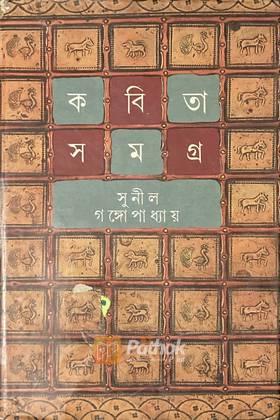 কবিতা
সমগ্র
সুনীল
গঙ্গোপাধ্যায়
Pathok